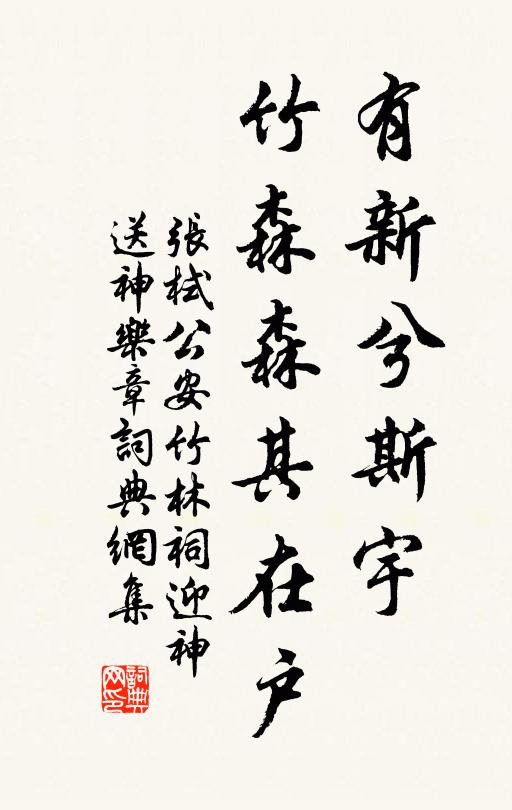 有新兮斯宇
竹森森其在戶
張栻公安竹林祠迎神
送神樂章詞典網集
詞典
网印